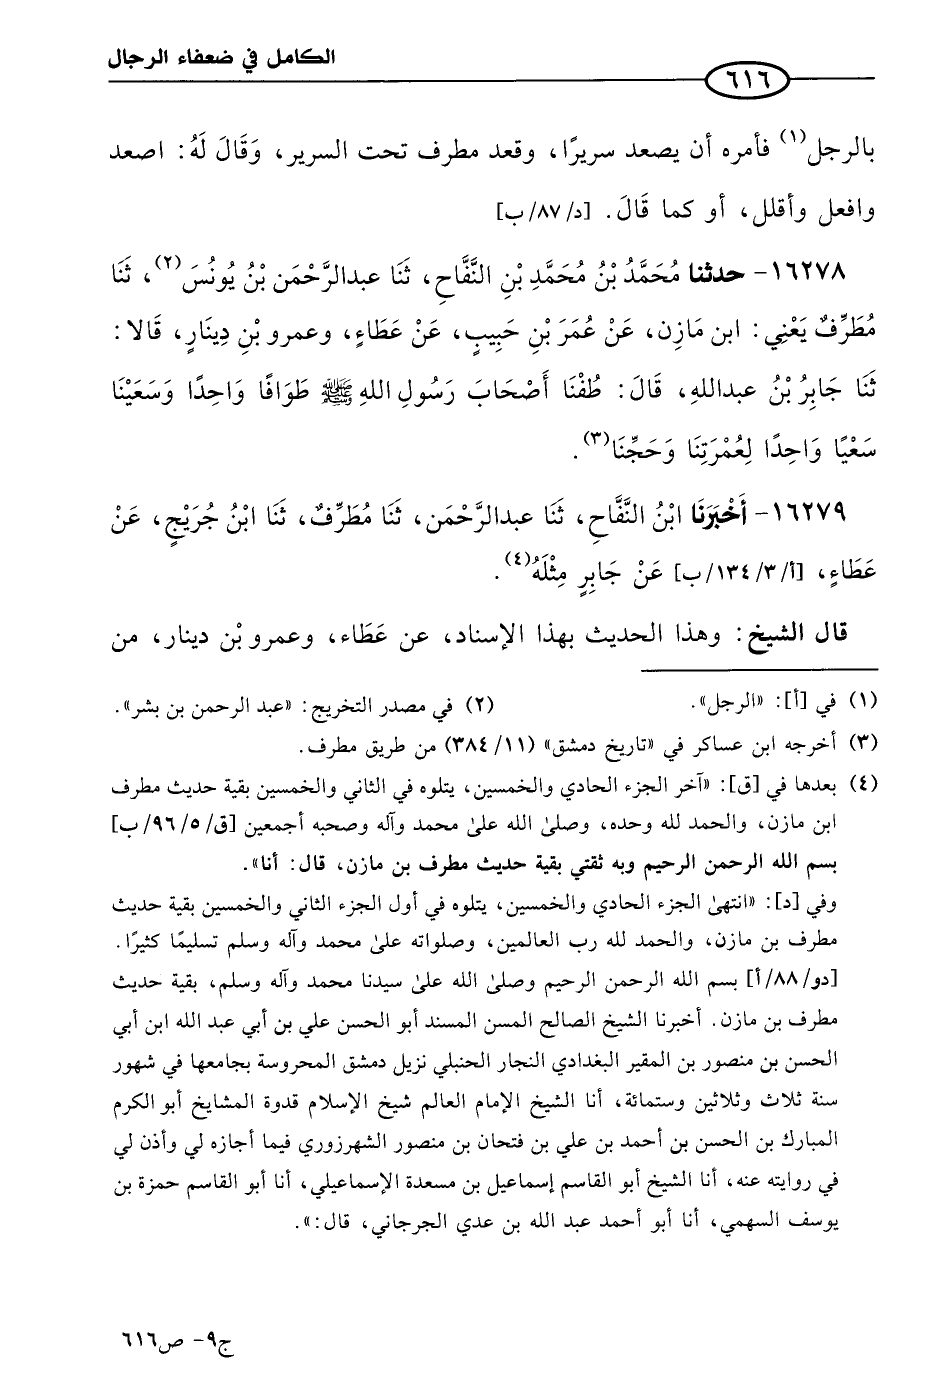 الكامل في ضعفاء الرجال
٦١٦
بالرجل(١) فأمره أن يصعد سريرًا، وقعد مطرف تحت السرير، وَقَالَ لَهُ: اصعد
وافعل وأقلل، أو كما قَالَ. [د/٨٧/ب]
١٦٢٧٨- حدثنا مُحَمَّدُ بْنُ مُحَمَّدِ بْنِ النَّفَّاحِ، ثَنَا عبدالرَّحْمَن بْنُ يُونُسَ(٢)، ثَنَا
مُطَرِّفٌ يَعْنِي: ابن مَازِن، عَنْ عُمَرَ بْنِ حَبِيبٍ، عَنْ عَطَاءٍ، وعمرو بْنِ دِينَارٍ، قَالا:
ثَنَا جَابِرُ بْنُ عبداللهِ، قَالَ: طُفْنَا أَصْحَابَ رَسُولِ اللهِ ﷺ طَوَافًا وَاحِدًا وَسَعَيْنَا
سَعْيًا وَاحِدًا لِعُمْرَتِنَا وَحَجِّنَا(٣).
١٦٢٧٩- أَخْبَرَنَا ابْنُ النَّفَّاحِ، ثَنَا عبدالرَّحْمَن، ثَنَا مُطَرِّفٌ، ثَنَا ابْنُ جُرَيْجٍ، عَنْ
عَطَاءٍ، [أ/٣/١٣٤/ب] عَنْ جَابِرٍ مِثْلَهُ(٤).
قال الشيخ: وهذا الحديث بهذا الإسناد، عن عَطَاء، وعمرو بْن دينار، من
(١) في [أ]: «الرجل». (٢) في مصدر التخريج: «عبد الرحمن بن بشر».
(٣) أخرجه ابن عساكر في «تاريخ دمشق» (١١/٣٨٤) من طريق مطرف.
(٤) بعدها في [ق]: «آخر الجزء الحادي والخمسين، يتلوه في الثاني والخمسين بقية حديث مطرف
ابن مازن، والحمد لله وحده، وصلىٰ الله علىٰ محمد وآله وصحبه أجمعين [ق/٥/٩٦/ب]
بسم الله الرحمن الرحيم وبه ثقتي بقية حديث مطرف بن مازن، قال: أنا».
وفي [د]: «انتهىٰ الجزء الحادي والخمسين، يتلوه في أول الجزء الثاني والخمسين بقية حديث
مطرف بن مازن، والحمد لله رب العالمين، وصلواته علىٰ محمد وآله وسلم تسليمًا كثيرًا.
[دو/٨٨/أ] بسم الله الرحمن الرحيم وصلىٰ الله علىٰ سيدنا محمد وآله وسلم، بقية حديث
مطرف بن مازن. أخبرنا الشيخ الصالح المسن المسند أبو الحسن علي بن أبي عبد الله ابن أبي
الحسن بن منصور بن المقير البغدادي النجار الحنبلي نزيل دمشق المحروسة بجامعها في شهور
سنة ثلاث وثلاثين وستمائة، أنا الشيخ الإمام العالم شيخ الإسلام قدوة المشايخ أبو الكرم
المبارك بن الحسن بن أحمد بن علي بن فتحان بن منصور الشهرزوري فيما أجازه لي وأذن لي
في روايته عنه، أنا الشيخ أبو القاسم إسماعيل بن مسعدة الإسماعيلي، أنا أبو القاسم حمزة بن
يوسف السهمي، أنا أبو أحمد عبد الله بن عدي الجرجاني، قال:».
ج٩- ص٦١٦